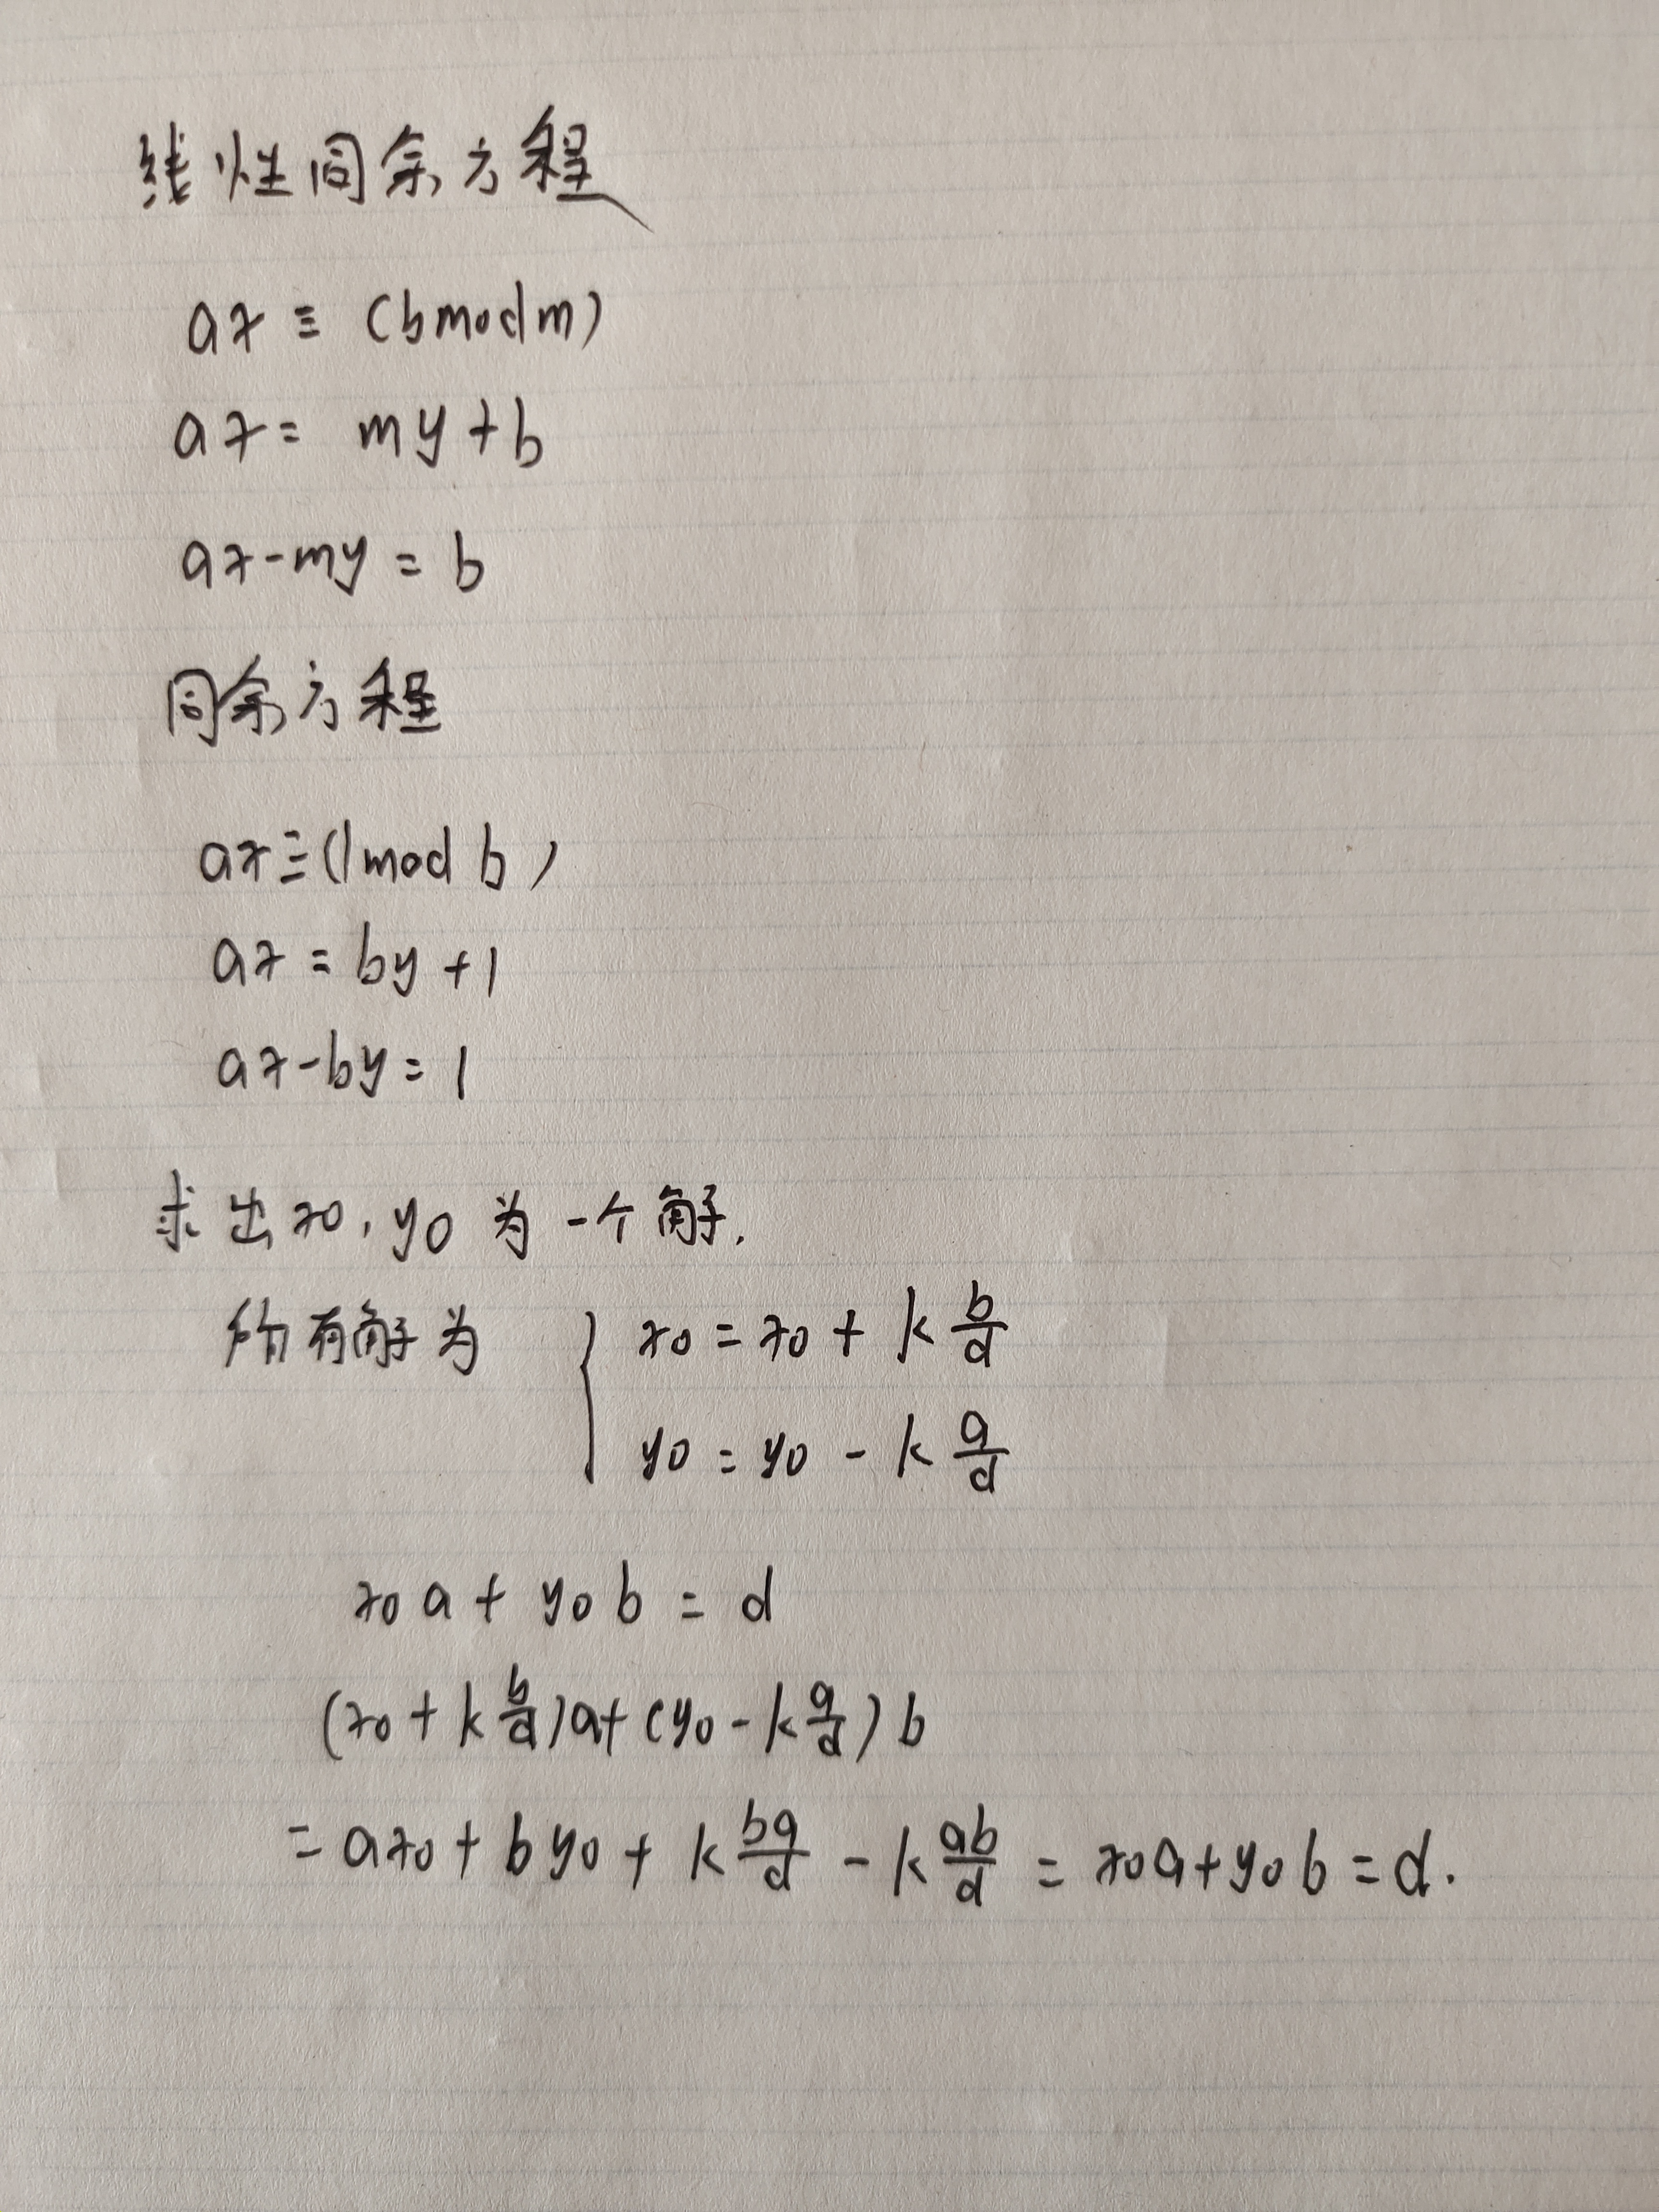 线性同余方程
ax ≡ (bmodm)
ax = my + b
ax - my = b
同余方程
ax ≡ (1mod b)
ax = by + 1
ax - by = 1
求出x0, y0 为一个解.
所有解为 { x0 = x0 + k b/d
y0 = y0 - k a/d
x0 a + y0 b = d
(x0 + k b/d)a + (y0 - k a/d) b
= ax0 + by0 + k ba/d - k ab/d = x0a + y0b = d.